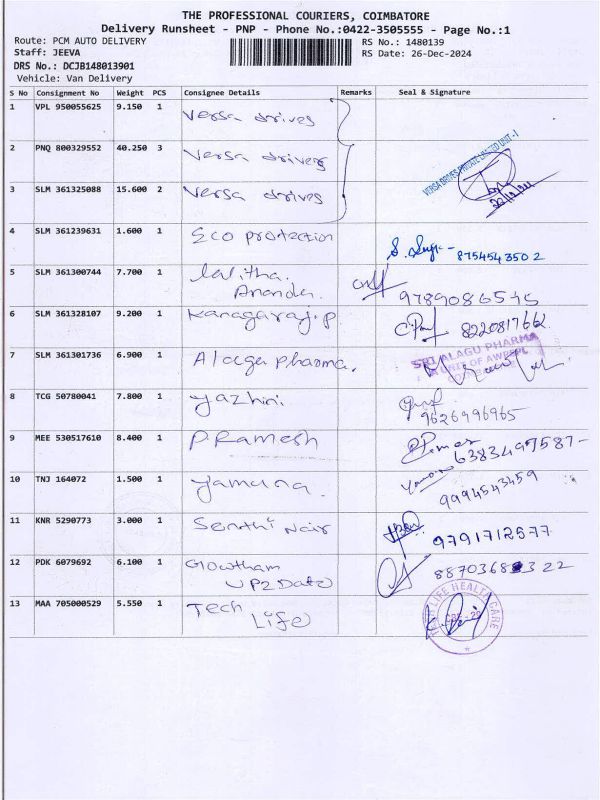 THE PROFESSIONAL COURIERS, COIMBATORE
Delivery Runsheet - PNP - Phone No.:0422-3505555 - Page No.:1
Route: PCM AUTO DELIVERY RS No.: 1480139
Staff: JEEVA RS Date: 26-Dec-2024
DRS No.: DCJB148013901
Vehicle: Van Delivery
S No Consignment No Weight PCS Consignee Details Remarks Seal & Signature
1 VPL 950055625 9.150 1 Versa drives
2 PNQ 800329552 40.250 3 Versa drives
VERSA DRIVES PRIVATE LIMITED UNIT-I
3 SLM 361325088 15.600 2 Versa drives
4 SLM 361239631 1.600 1 Eco protection
8754543502
5 SLM 361300744 7.700 1 Lalitha.
Ananda.
9789086545
6 SLM 361328107 9.200 1 Kanagaraj.P
8220817662
7 SLM 361301736 6.900 1 Alaga pharma.
SRI ALAGU PHARMA
8 TCG 50780041 7.800 1 yazhini
9626996965
9 MEE 530517610 8.400 1 P.Ramesh
6383497587-
10 TNJ 164072 1.500 1 yamuna.
9994543459
11 KNR 5290773 3.000 1 Senthi Nair
9791712577
12 PDK 6079692 6.100 1 Glowtham
UP2Date
13 MAA 705000529 5.550 1 Tech
Life
TECH LIFE HEALTH CARE